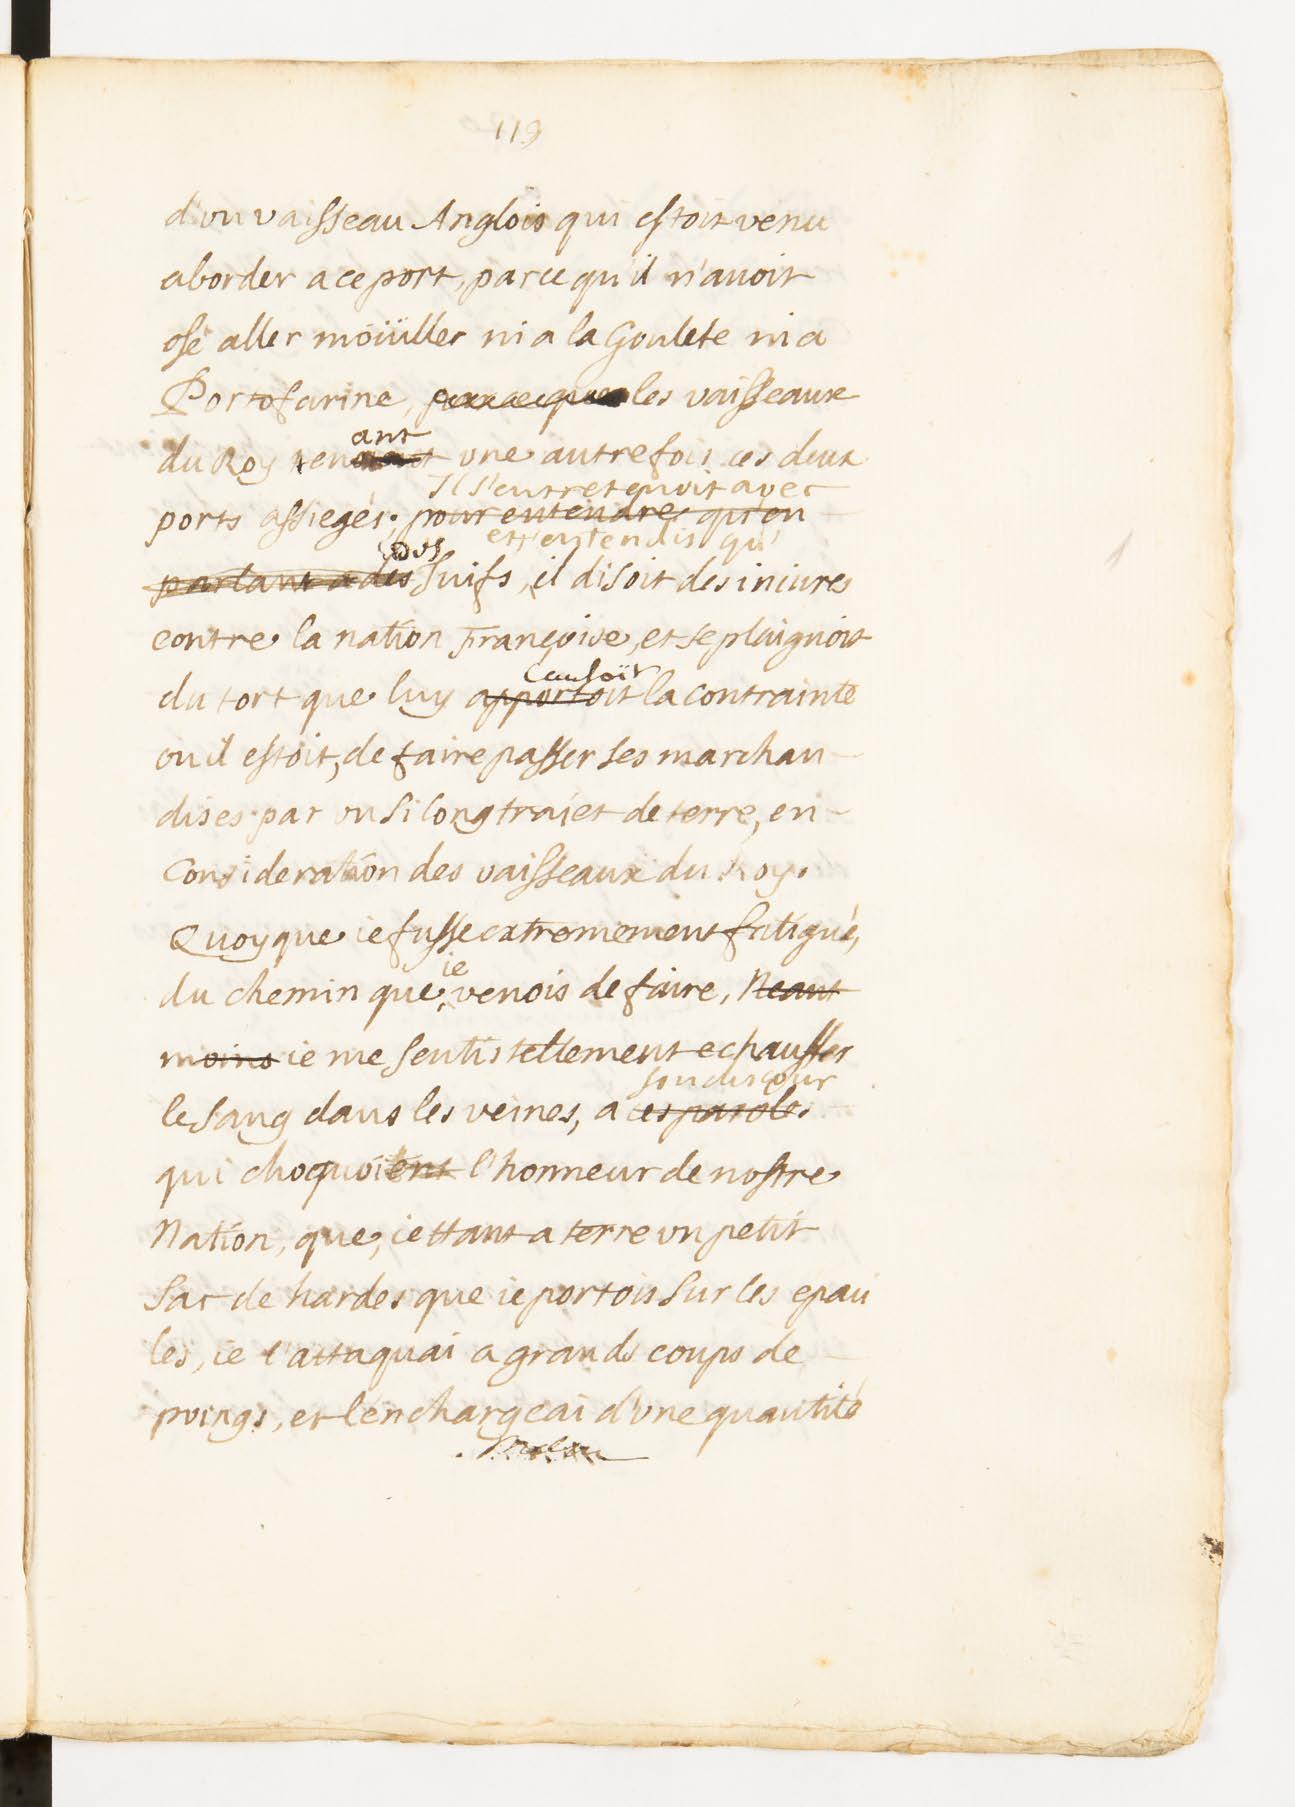 119
d'vn vaisseau Anglois qui estoit venu
aborder a ce port, parce qu'il n'auoit
osé aller moüiller ni a la Goulete ni a
Portofarine, parce que les vaisseaux
ant
du Roy tenoient vne autrefois ces deux
Il s'entretenoit avec
ports assiegés. pour entendre qu'en
et j'entendis qu'
dos
parlant a des Juifs, il disoit des iniures
contre la nation Françoise, et se plaignoit
causoit
du tort que luy apportoit la contrainte
ou il estoit, de faire passer ses marchan
dises par vn si long traiet de terre, en
Consideration des vaisseaux du Roy.
Quoyque ie fusse extremement fatigué,
ie
du chemin que venois de faire, Neant
moins ie me sentis tellement echauffer
son discour
le sang dans les veines, a ces paroles
qui choquoient l'honneur de nostre
Nation, que, iettant a terre vn petit
sac de hardes que ie portois sur les epau
les, ie l'attaquai a grands coups de
poings, et l'en chargeai d'vne quantité